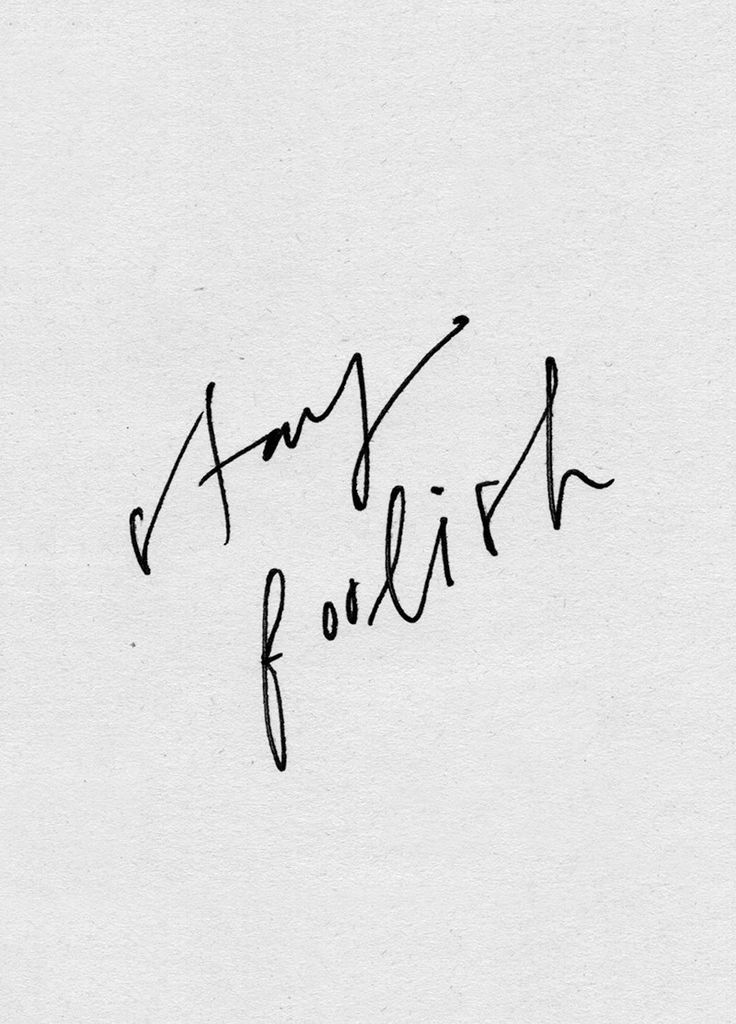 stay
foolish